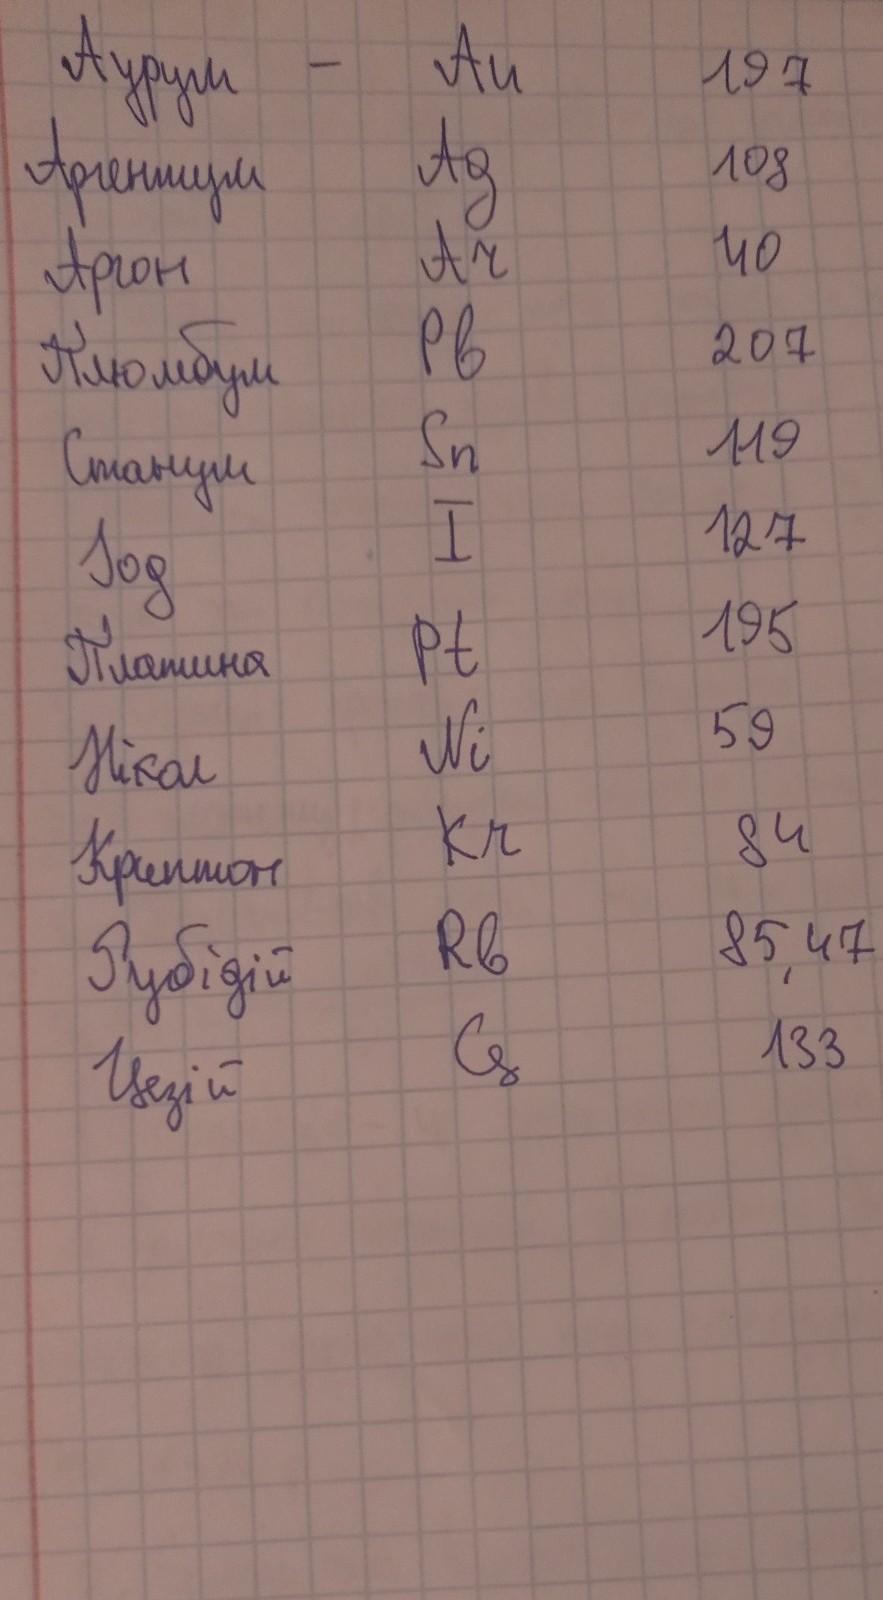 Аурум - Au 197
Аргентум Ag 108
Аргон Ar 40
Плюмбум Pb 207
Станум Sn 119
Іод I 127
Платина Pt 195
Нікол Ni 59
Криптон Kr 84
Рубідій Rb 85,47
Цезій Cs 133